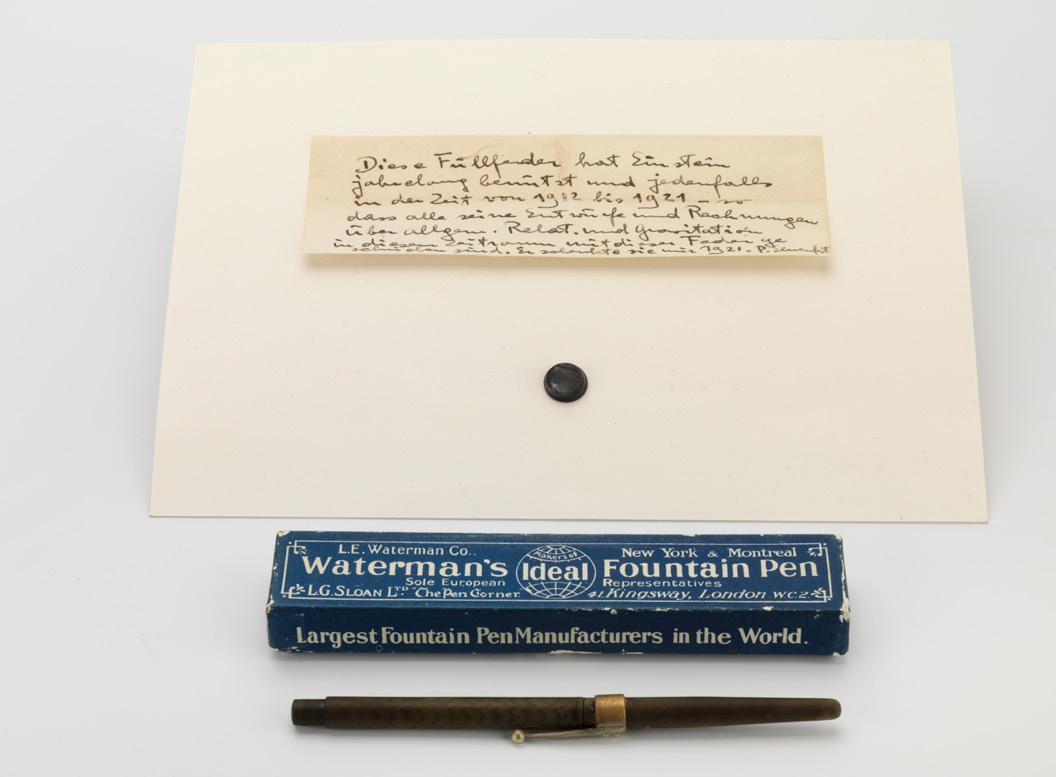 Diese Füllfeder hat Einstein
jahrelang benützt und jedenfalls
in der Zeit von 1912 bis 1921 – so
dass alle seine Entwürfe und Rechnungen
über allgem. Relat. und Gravitation
in diesem Zeitraum mit dieser Feder ge
schrieben sind. Er schenkte sie mir 1921. P.
L.E. Waterman Co.. New York & Montreal
Waterman's Makers of Ideal Fountain Pen
Sole European Representatives
L.G. SLOAN LTD The Pen Corner. 41. Kingsway, London W.C.2
Largest Fountain Pen Manufacturers in the World.